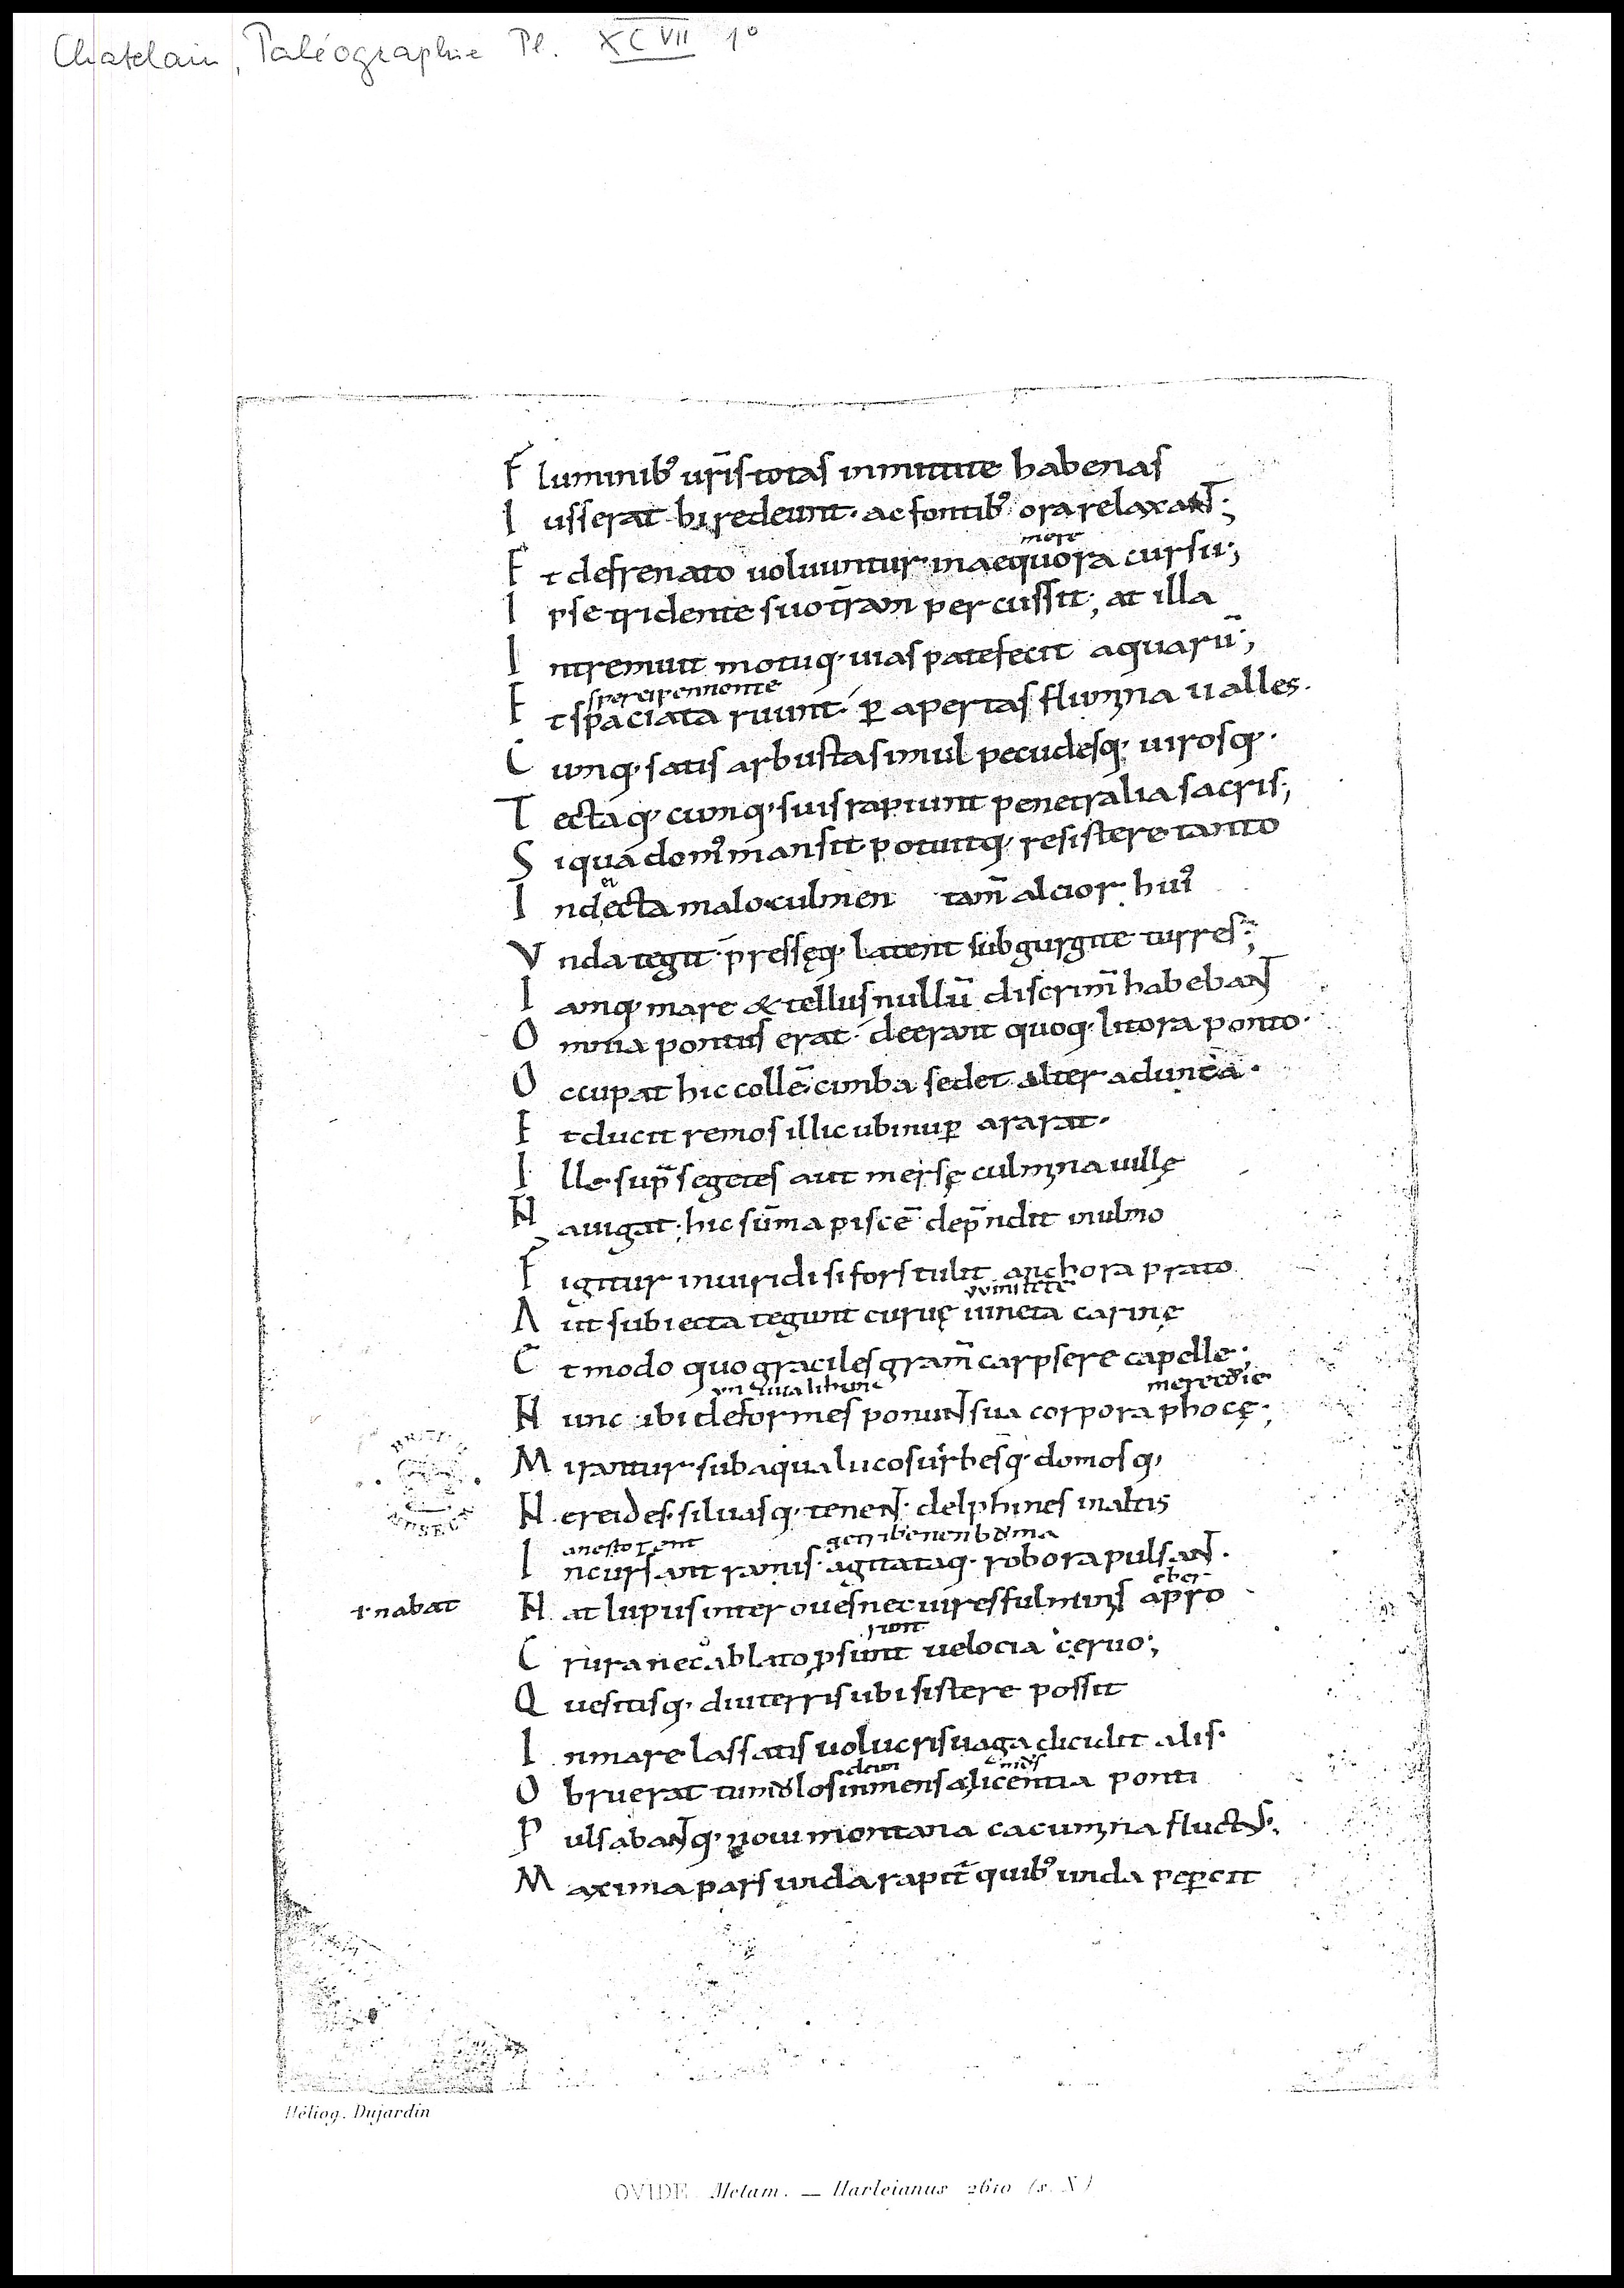 Chatelain, Paléographie Pl. XCVII 1º
F luminib᾽ ur̃is totas inmittite habenas
I usserat· hi redeunt· ac fontib᾽ ora relaxant·;
mere
E t defrenato uoluuntur in aequora cursu·;
I pse tridente suo t̄ram percussit·; at illa
I ntremuit motuq· uias patefecit aquarū·;
E t spaciata ruunt· ꝑ apertas flumina ualles·
C umq· satis arbusta simul pecudesq· uirosq·
T ectaq· cumq· suis rapiunt penetralia sacris·;
S iqua dom᾽ mansit potuitq· resistere tanto
ei
I ndęcta malo· culmen tam̄ alcior hui᾽
V nda tegit· pressęq· latent sub gurgite turres·;
I amq· mare & tellus nullū discrim̄ habebant
O mnia pontus erat· deerant quoq· litora ponto·
O ccupat hic collē· cimba sedet alter adunca·
E t ducit remos illic ubi nuꝑ ararat·
I lle· sup̄ segetes aut mersę culmina uillę
N auigat· hic sūma piscē dep̄ndit in ulmo
F igitur in uiridi si fors tulit anchora prato
A ut subiecta tegunt curuę uineta carinę
E t modo quo graciles gram̄ carpsere capelle·;
N unc ubi deformes ponunt sua corpora phocę·;
M irantur sub aqua lucos urbesq· domosq·
N ereides· siluasq· tenent· delphines in altis
I ncursant ramis· agitataq· robora pulsant·
eber
ł nabat N at lupus inter oues nec uires fulminis apro
C rura nec ablato ꝓsunt uelocia ceruo·;
Q uesitisq· diu terris ubi sistere possit
I n mare lassatis uolucris uaga dicidit alis·
O bruerat tumulos inmensa licentia ponti
P ulsabantq· noui montana cacumina fluctus·;
M axima pars unda rapit᷑ quib᾽ unda peꝑcit
BRITISH MUSEUM
Héliog. Dujardin
OVIDE Metam. — Harleianus 2610 (s. X)